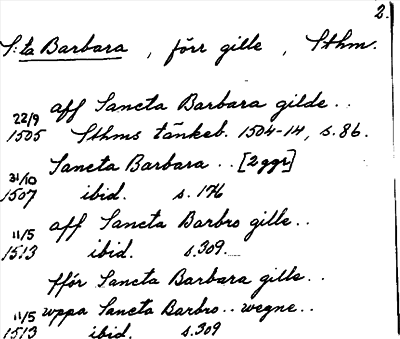 2.
S:ta Barbara, förr gille, Sthm.
22/9 aff Sancta Barbara gilde..
1505 Sthms tänkeb. 1504-14, s.86.
Sancta Barbara..[2ggr]
31/10
1507 ibid. s.176
aff Sancta Barbro gille..
11/5
1513 ibid. s.309.
fför Sancta Barbara gille..
11/5 uppa Sancta Barbro..wegne..
1513 ibid. s.309